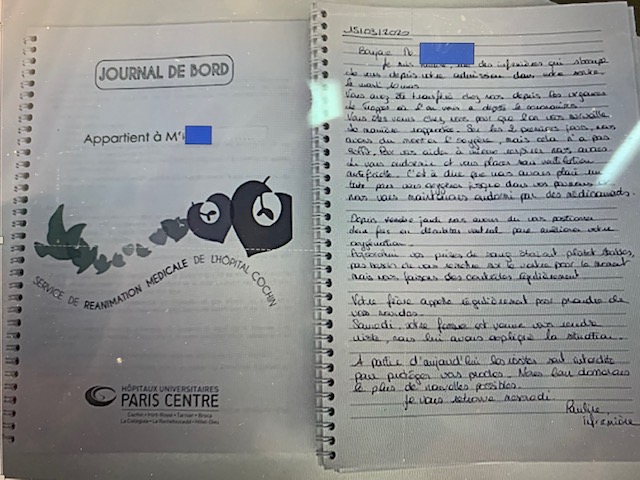 JOURNAL DE BORD
Appartient à Mr
SERVICE DE REANIMATION MÉDICALE DE L'HÔPITAL COCHIN
HÔPITAUX UNIVERSITAIRES
PARIS CENTRE
Cochin • Port-Royal • Tarnier • Broca
La Collégiale • La Rochefoucauld • Hôtel-Dieu
15/03/2020
Bonjour M.
Je suis des infirmières qui s'occupe
de vous depuis votre admission dans notre service
le mardi 10 mars.
Vous avez été transféré chez nous depuis les urgences
de où l'on vous a dépisté le coronavirus.
Vous êtes venus chez nous pour que l'on vous surveille
de manière rapprochée. Sur les 2 premiers jours, nous
avons du mettre l'oxygène, mais cela n'a pas
suffit. Pour vous aider à mieux respirer nous avons
du vous endormir et vous placer sous ventilation
artificielle. C'est à dire que nous avons placé un
tube pour vous oxygéner jusque dans vos poumons et
nous vous maintenons endormi par des médicaments.
Depuis jeudi nous avons du vous positionner
deux fois en décubitus ventral pour améliorer votre
oxygénation.
Aujourd'hui vos prises de sang étaient plutôt stables,
pas besoin de vous remettre sur le ventre pour le moment
mais nous faisons des contrôles régulièrement.
Votre frère appelle régulièrement pour prendre de
vos nouvelles.
Samedi, votre femme est venue vous rendre
visite, nous lui avons expliqué la situation.
A partir d'aujourd'hui les visites sont interdites
pour protéger vos proches. Nous leur donnerons
le plus de nouvelles possibles.
Je vous retrouve mercredi.
Pauline,
infirmière